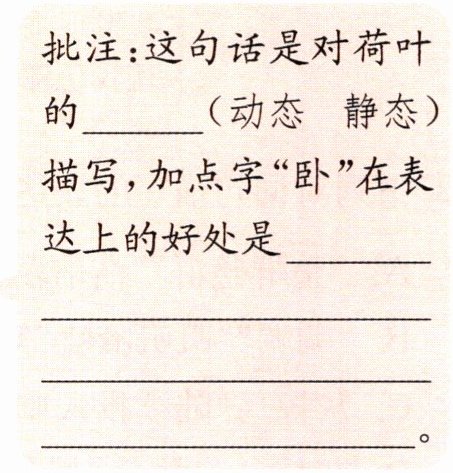 批注：这句话是对荷叶
的______（动态 静态）
描写，加点字“卧”在表
达上的好处是______
______
______
______。